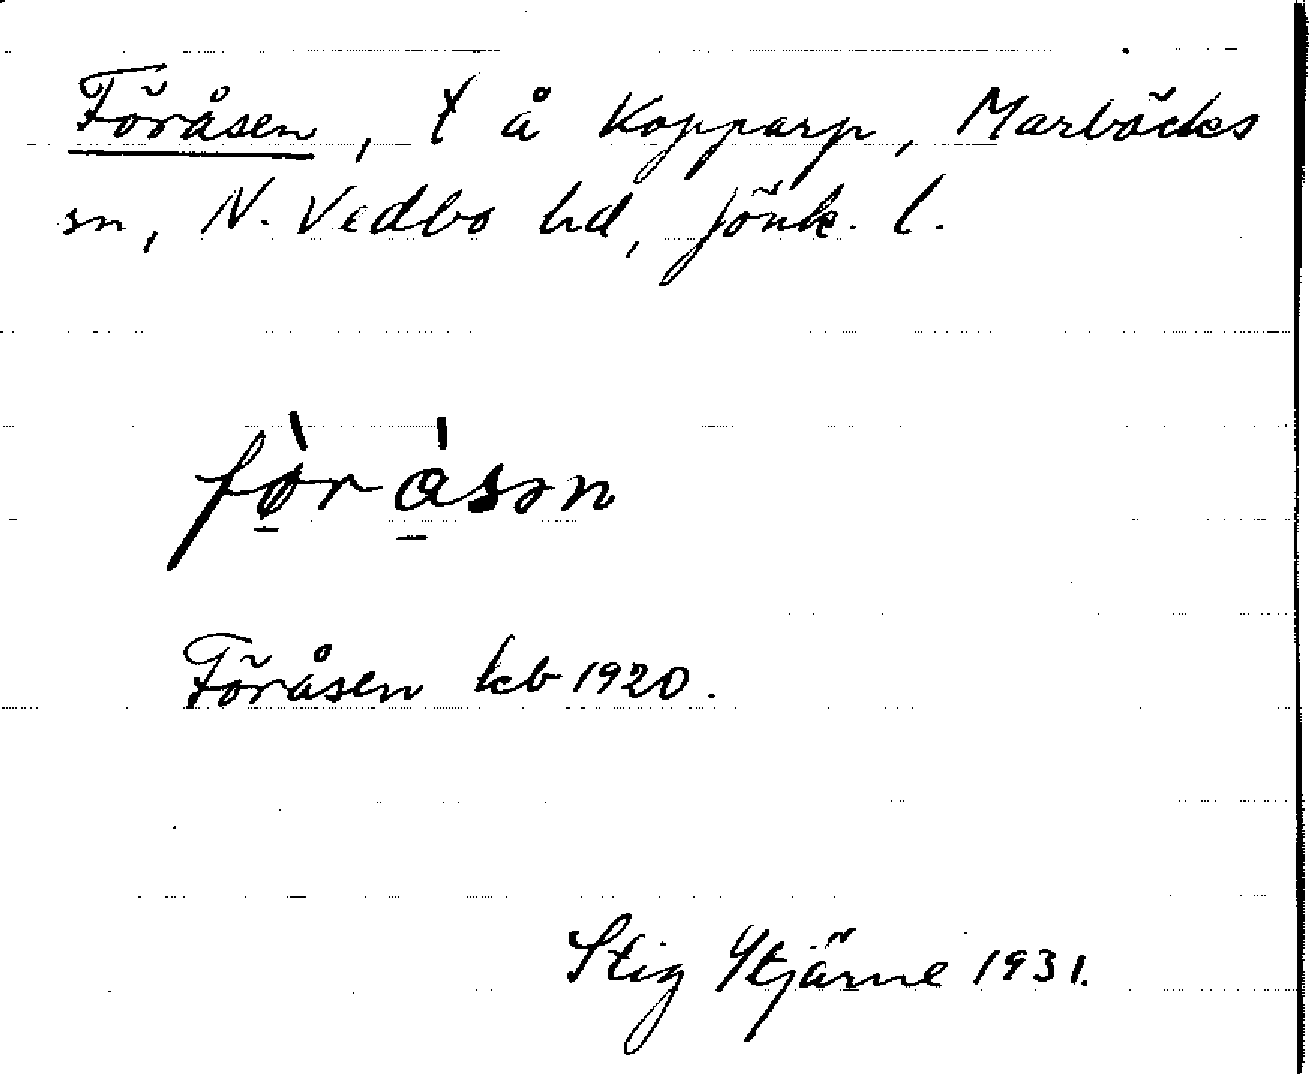 Föråsen, t å Kopparp, Marbäcks
sn, N. Vedbo hd, Jönk. l.
fø̀r àsən
Föråsen kb 1920.
Stig Ytjärne 1931.